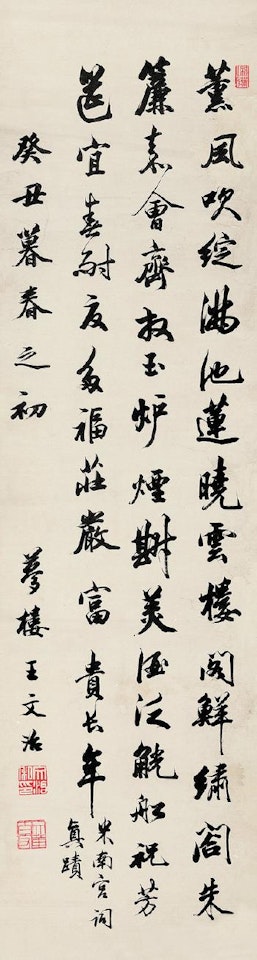 薰風吹綻滿池蓮曉雲樓閣鮮繡閤朱
簾嘉會齊拜玉炉煙斟美酒泛觥船祝芳
筵宜春耐夏多福莊嚴富貴長年
米南宮詞
真蹟
癸丑暮春之初
夢樓王文治